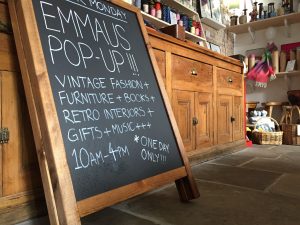 MONDAY
EMMAUS
POP-UP!!!
VINTAGE FASHION+
FURNITURE+BOOKS+
RETRO INTERIORS+
GIFTS+MUSIC+++
10AM-4PM
*ONE DAY
ONLY!!!